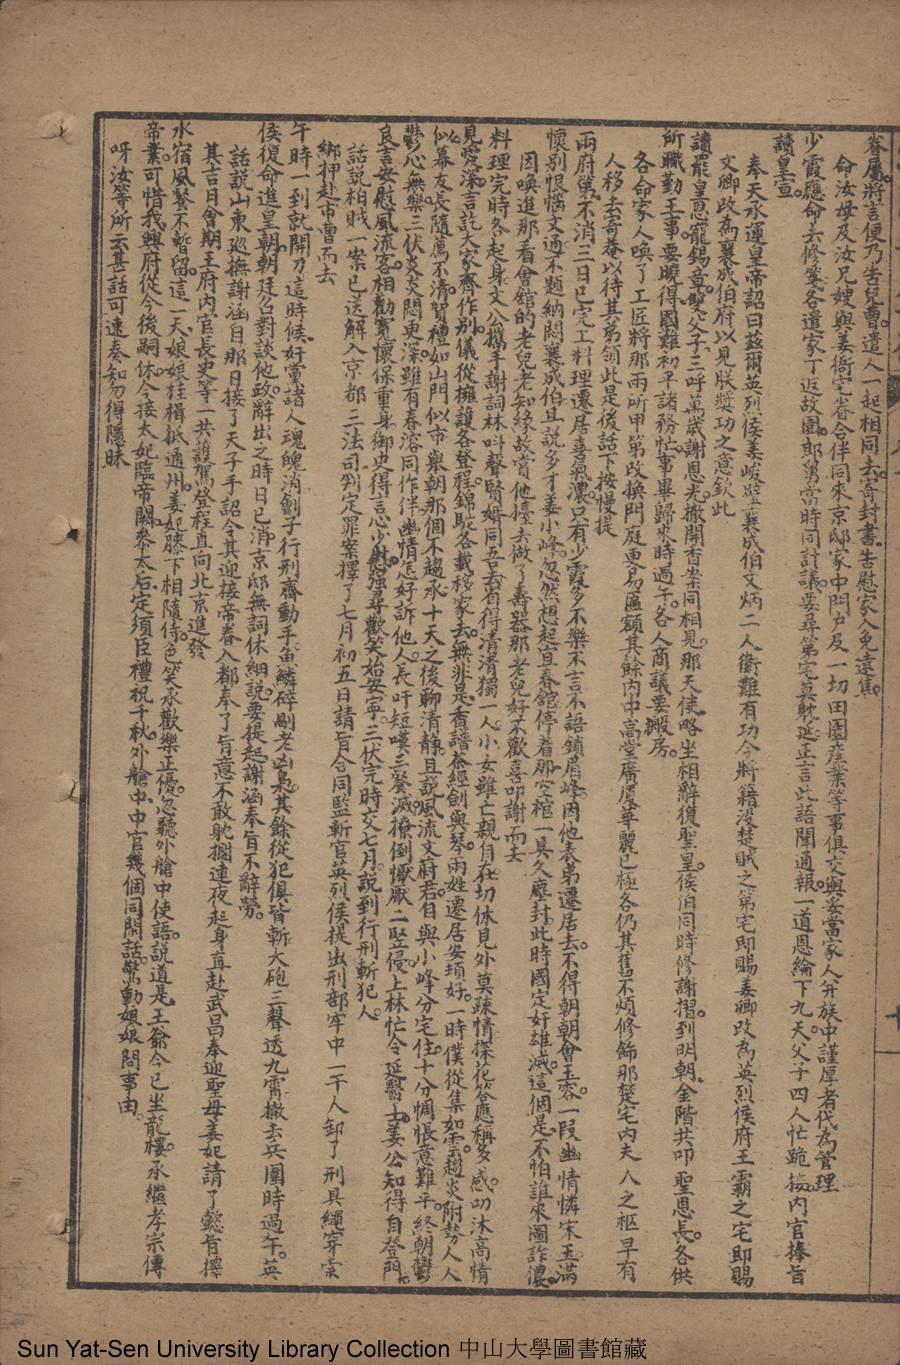 眷屬將言便乃告兒曹遣人一起相同去寄封書告慰家人免遠焦
命汝母及汝兄嫂與姜衙宅眷合伴同來京邸家中門戶及一切田園產業等事俱交與妥當家人并族中謹厚者代為管理
少霞應命去修箋各遣家丁返故園郎舅當時同計議要尋第宅莫躭延正言此語聞通報一道恩綸下九天父子四人忙跪接內官捧旨
讀皇宣
奉天承運皇帝詔曰茲爾英烈侯姜峻璧襄成伯文炳二人衛難有功今將籍沒楚賊之第宅即賜姜卿改為英烈侯府王霸之宅即賜
文卿改為襄成伯府以見朕獎功之意欽此
讀罷皇恩寵錫章雙父子三呼萬歲謝恩光撤開香案同相見那天使略坐相辭復聖皇侯伯同時修謝摺到明朝金階共叩聖恩長各供
所職勤王事要曉得國難初平諸務忙事畢歸來時過午各人商議要搬房
各命家人喚了工匠將那兩所甲第改換門庭更易匾額其餘內中高堂廣厦華麗已極各仍其舊不煩修飾那楚宅內夫人之柩早有
人移去奇菴以待其弟領此是後話下按慢提
兩府第不消三日已完工料理遷居喜氣濃只有少霞多不樂不言不語鎖眉峰因他表弟遷居去不得朝朝會玉容一段幽情憐宋玉滿
懷別恨惱文通不題納悶襄成伯且說多才姜小峰忽然想起宜春舘停着那空棺一具久塵封此時國定奸雄滅這個是不怕誰來圖詐濃
因喚進那看會舘的老兒老知緣故賞他擡去做了壽器那老兒好不歡喜叩謝而去
料理完時各起身文公攜手謝詞林呌聲賢婿同吾去省得清清獨一人小女雖亡親自在切休見外莫疎情探花答應稱多感叨沐高情
見愛深言訖大家齊作別儀從擁護各登程錦馱各載移家去無非是香譜茶經劍與琴兩姓遷居安頓好一時僕從集如雲趨炎附勢人人
似幕友長隨薦不清賀禮如山門似市舉朝那個不趨承十天之後聊清靜且說風流文蔚君自與小峰分宅住十分惆悵意難平終朝鬱
鬱心無樂三伏炎炎悶更深雖有春溶同作伴幽情怎好訴他人長吁短嘆三餐減撩倒懨厭二竪侵上林忙令延醫士姜公知得自登門
良言安慰風流客相勸寬懷保重身御史得言心少慰強尋歡笑始安寧三伏完時交七月說到行刑斬犯人
話說柏賊一案已送解入京都三法司判定罪案擇了七月初五日請旨合同監斬官英烈侯提出刑部牢中一干人卸了刑具繩穿索
綁押赴市曹而去
午時一到就開刀這時候好黨諸人魂魄消劊子行刑齊動手亩鱗碎剮老凶梟其餘從犯俱皆斬大砲三聲透九霄撤去兵圍時過午英
侯復命進皇朝朝廷召對談他政辭出之時日已消京邸無詞休細說要提起謝涵奉旨不辭勞
話說山東巡撫謝涵自那日接了天子手詔令其迎接帝眷入都奉了旨意不敢躭擱連夜起身直赴武昌奉迎聖母姜妃請了懿旨擇
其吉日會期王府內官長史等一共護駕登程直向北京進發
水宿風餐不暫留這一天娘娘桂楫抵通州姜妃膝下相隨侍色笑承歡樂正優忽聽外艙中使語說道是王爺今已坐龍樓承繼孝宗傳
帝業可惜我興府從今後嗣休今接太妃臨帝闕叅太后定須臣禮祝千秋外艙中中官幾個同閒話驚動娘娘問事由
呀汝等所云甚話可速奏知勿得隱昧